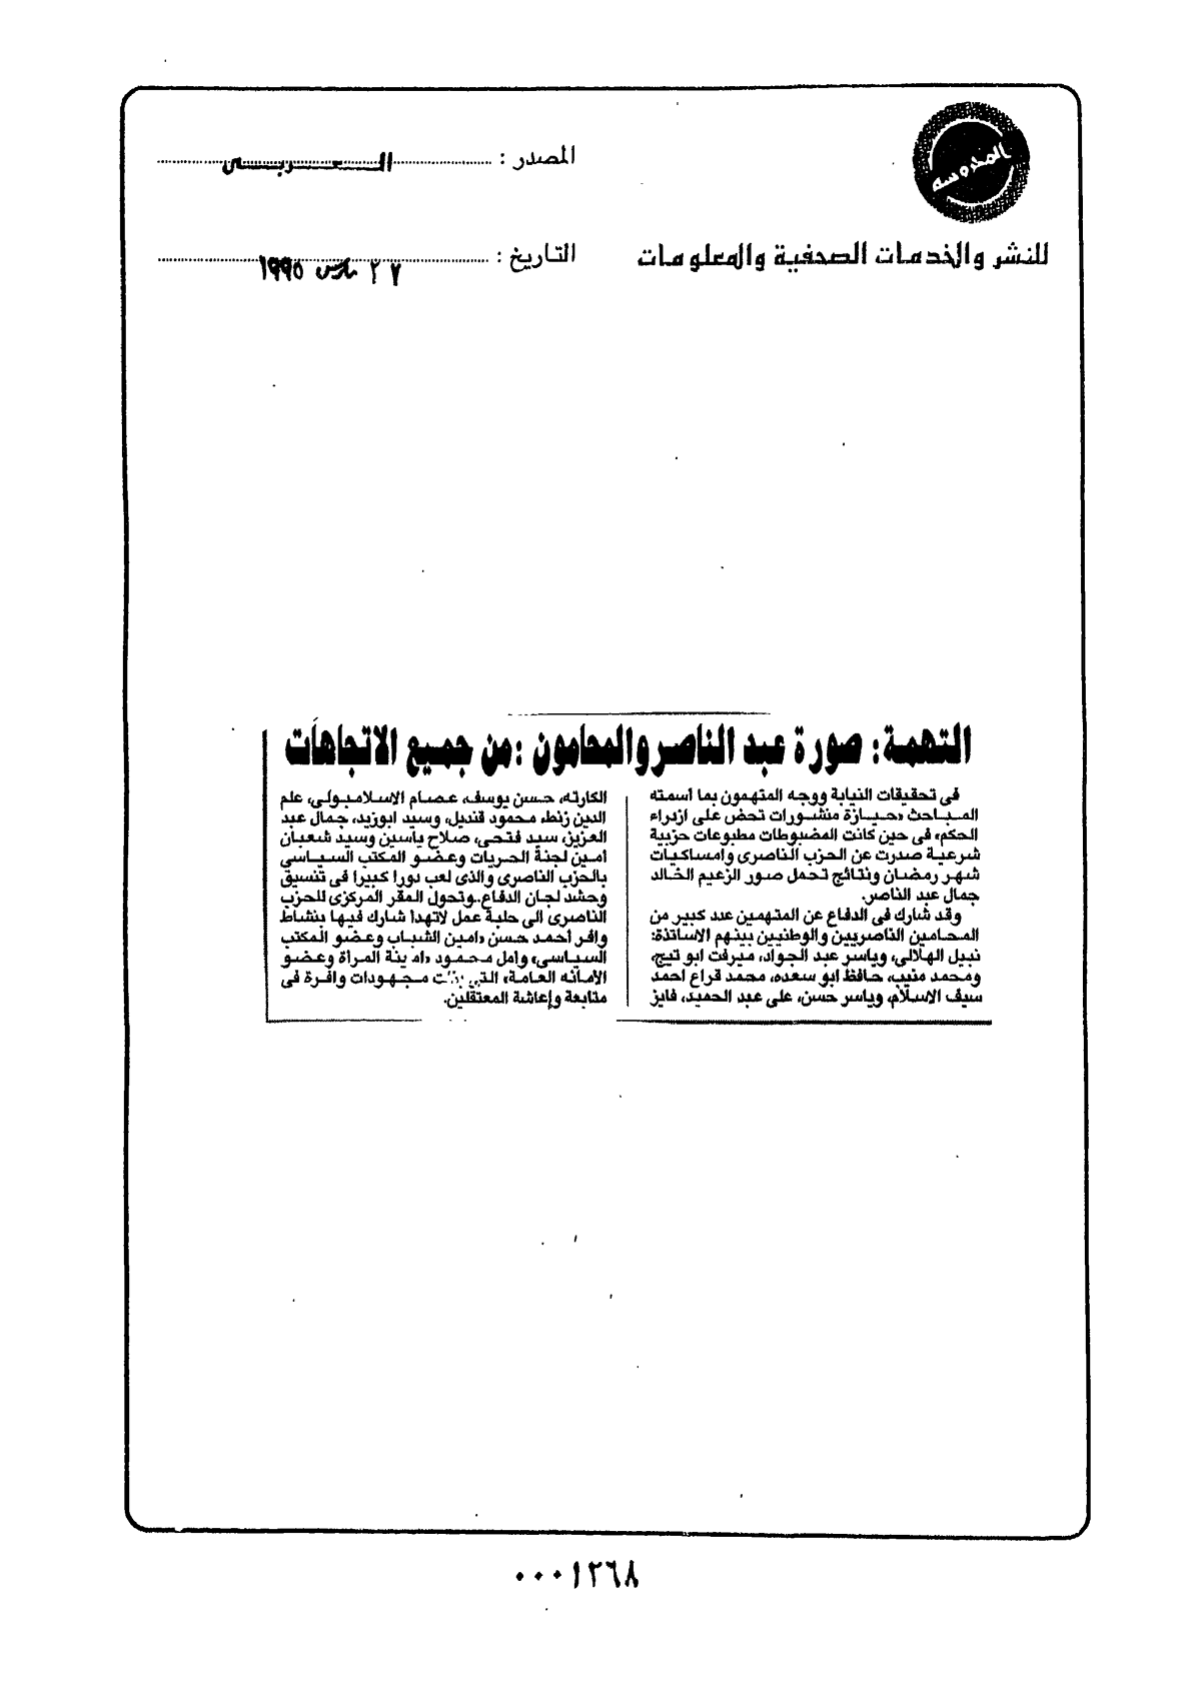 المحروسه
للنشر والخدمات الصحفية والمعلومات
المصدر : العربى
التاريخ : ٢٧ مارس ١٩٩٥
التهمة : صورة عبد الناصر والمحامون : من جميع الاتجاهات
فى تحقيقات النيابة ووجه المتهمون بما أسمته
المباحث «حيازة منشورات تحض على ازدراء
الحكم» فى حين كانت المضبوطات مطبوعات حزبية
شرعية صدرت عن الحزب الناصرى وامساكيات
شهر رمضان ونتائج تحمل صور الزعيم الخالد
جمال عبد الناصر.
وقد شارك فى الدفاع عن المتهمين عدد كبير من
المحامين الناصريين والوطنيين بينهم الاساتذة:
نبيل الهلالى، وياسر عبد الجواد، ميرفت ابو تيج،
ومحمد منيب، حافظ ابو سعده، محمد قراع احمد
سيف الاسلام، وياسر حسن، على عبد الحميد، فايز
الكارته، حسن يوسف، عصام الاسلامبولى، علم
الدين زنط، محمود قنديل، وسيد ابوزيد، جمال عبد
العزيز، سيد فتحى، صلاح ياسين وسيد شعبان
امين لجنة الحريات وعضو المكتب السياسى
بالحزب الناصرى والذى لعب دورا كبيرا فى تنسيق
وحشد لجان الدفاع.. وتحول المقر المركزى للحزب
الناصرى الى حلبة عمل لاتهدا شارك فيها بنشاط
وافر أحمد حسن «امين الشباب وعضو المكتب
السياسى» وامل محمود «امينة المراة وعضو
الامانه العامة» التى بذلت مجهودات وافرة فى
متابعة وإعاشة المعتقلين.
٠٠٠١٢٦٨